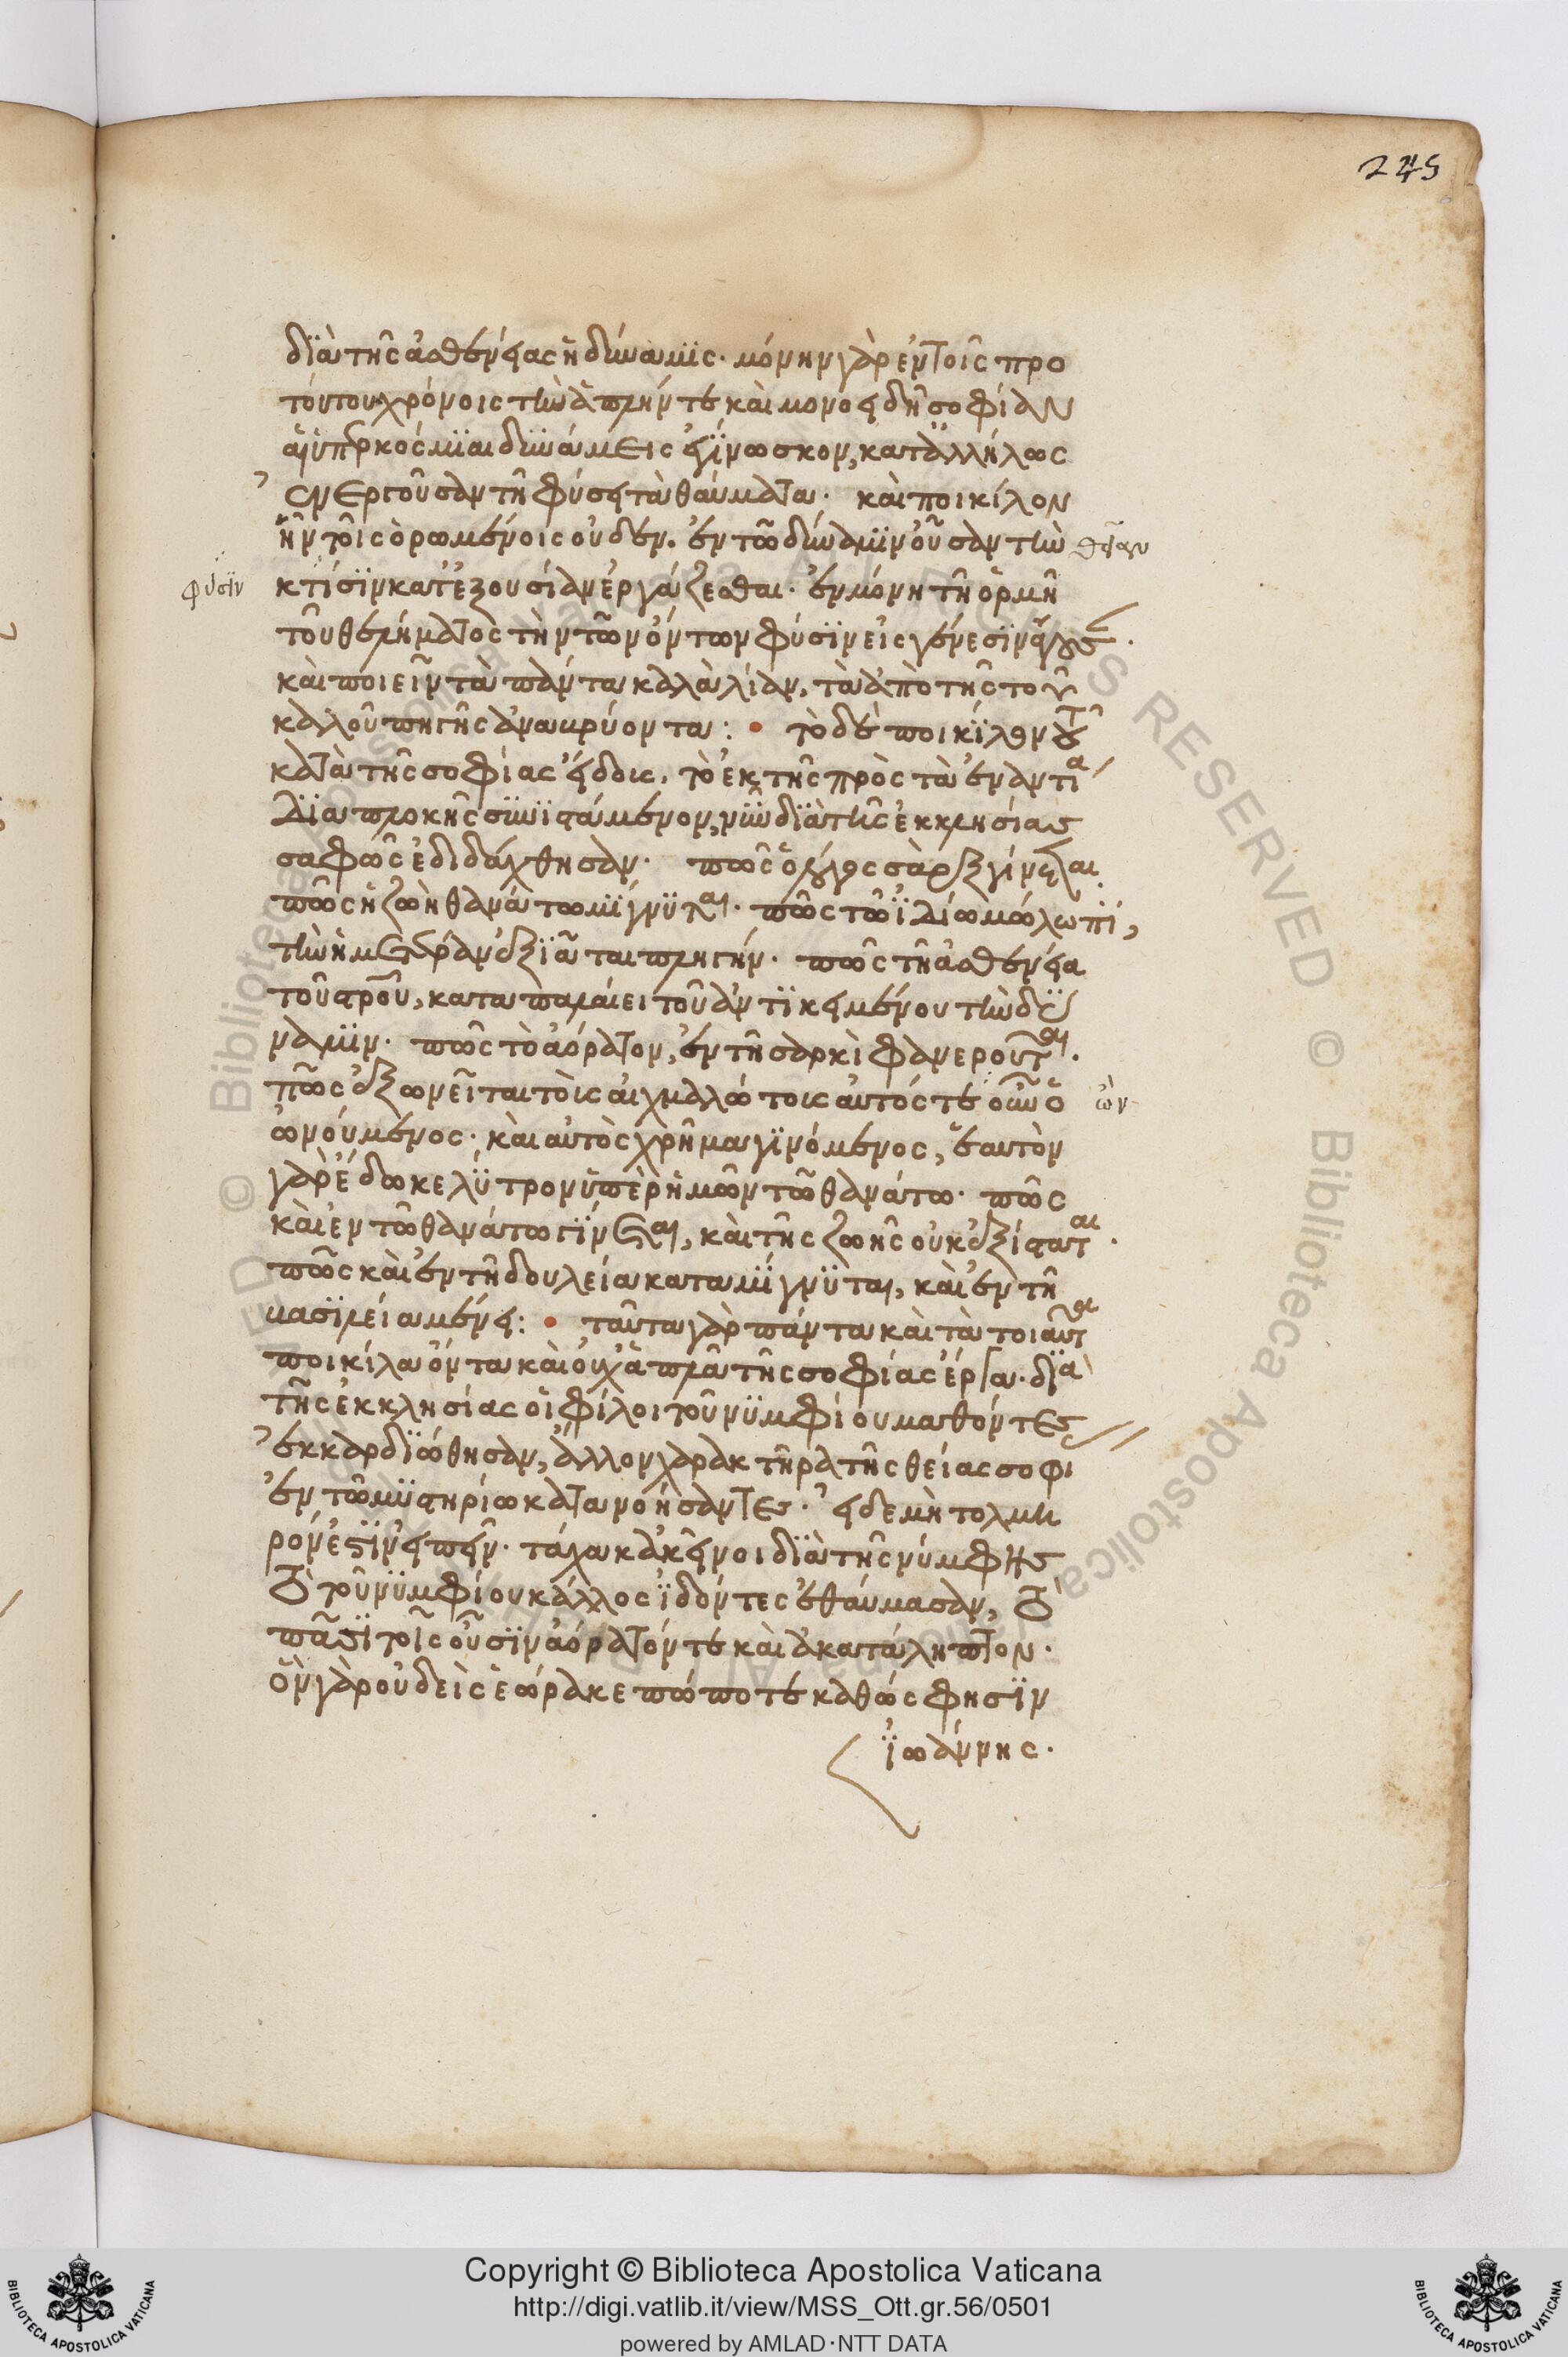 245
διὰ τῆς ἀσθενείας ἡ δύναμις· μόνην γὰρ ἐν τοῖς προ
τούτου χρόνοις τὴν ἁπλήν τε καὶ μονοειδῆ σοφίαν
αἱ ὑπερκόσμιαι δυνάμεις ἐγίνωσκον, καταλλήλως
ἐνεργοῦσαν τῇ φύσει τὰ θαύματα· καὶ ποικίλον
ἦν τοῖς ὁρωμένοις οὐδέν. ἐν τῷ δύναμιν οὖσαν τὴν
φύσιν
κτίσιν κατ' ἐξουσίαν ἐργάζεσθαι· ἐν μόνῃ τῇ ὁρμῇ
τοῦ θελήματος τὴν τῶν ὄντων φύσιν εἰς γένεσιν
καὶ ποιεῖν τὰ πάντα καλὰ λίαν, τὰ ἀπὸ τῆς τοῦ
καλοῦ πηγῆς ἀνακρύοντα: τὸ δὲ ποικίλον τοῦτο
κατὰ τῆς σοφίας εἶδος, τὸ ἐκ τῆς πρὸς τὰ ἐναντία
διαπλοκῆς συνιστάμενον, νῦν διὰ τῆς ἐκκλησίας
σαφῶς ἐδιδάχθησαν· πῶς ὁ λόγος σὰρξ γίνεται
πῶς ἡ ζωὴ θανάτω μίγνυται· πῶς τῷ ἰδίω μώλωπι,
τὴν ἡμετέραν ἐξιᾶται πληγήν· πῶς τῇ ἀσθενείᾳ
τοῦ σταυροῦ, καταπαλαίει τοῦ ἀντικειμένου τὴν δύ
ναμιν· πῶς τὸ ἀόρατον, ἐν τῇ σαρκὶ φανεροῦται·
πῶς ἐξωνεῖται τοὺς αἰχμαλώτους αὐτός τε ὁ
ὢν
ὠνούμενος· καὶ αὐτὸς χρῆμα γινόμενος, ἑαυτὸν
γὰρ ἔδωκε λύτρον ὑπὲρ ἡμῶν τῷ θανάτω· πῶς
καὶ ἐν τῷ θανάτω γίνεται, καὶ τῆς ζωῆς οὐκ ἐξίσταται·
πῶς καὶ ἐν τῇ δουλεία καταμίγνυται, καὶ ἐν τῇ
βασιλεία μένει: ταῦτα γὰρ πάντα καὶ τὰ τοιαῦτα
ποικίλα ὄντα καὶ οὐχ ἁπλᾶ τῆς σοφίας ἔργα· διὰ
τῆς ἐκκλησίας οἱ φίλοι τοῦ νυμφίου μαθόντες
ἐκαρδιώθησαν, ἄλλον χαρακτῆρα τῆς θείας σοφι
ἐν τῷ μυστηρίω κατανοήσαντες· εἰ δὲ μὴ τολμη
ρόν ἐστιν εἰπεῖν· τάχα κἀκεῖνοι διὰ τῆς νύμφης
τὸ τοῦ νυμφίου κάλλος ἰδόντες ἐθαύμασαν, τὸ
πᾶσι τοῖς οὖσιν ἀόρατόν τε καὶ ἀκατάληπτον·
ὃν γὰρ οὐδεὶς ἑώρακε πώποτε καθώς φησιν
ἰωάννης·
Copyright © Biblioteca Apostolica Vaticana
http://digi.vatlib.it/view/MSS_Ott.gr.56/0501
powered by AMLAD·NTT DATA